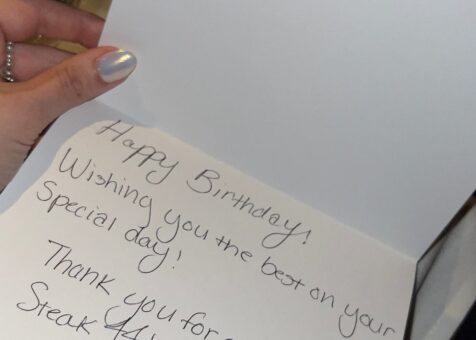 Happy Birthday!
Wishing you the best on your
Special day!
Thank you for
Steak